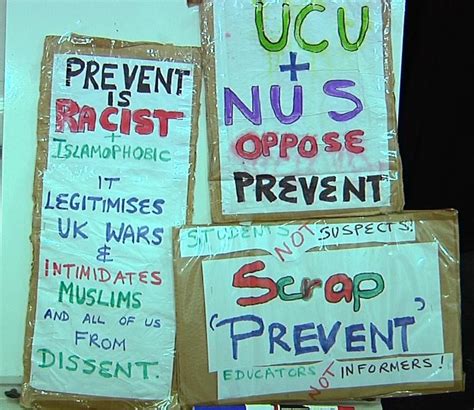 PREVENT
IS
RACIST
+
ISLAMOPHOBIC
IT
LEGITIMISES
UK WARS
&
INTIMIDATES
MUSLIMS
AND ALL OF US
FROM
DISSENT.
UCU
+
NUS
OPPOSE
PREVENT
STUDENTS NOT SUSPECTS!
Scrap
'PREVENT'
EDUCATORS NOT INFORMERS!